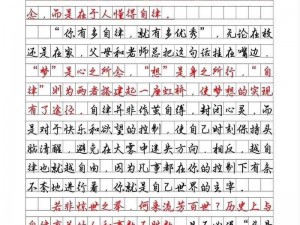 念，而是在于人懂得自律。
“你有多自律，就有多优秀”，无论在校
还是在家，父母和老师总把这句话挂在嘴边。
“梦”是心之所念，“想”是身之所行，“自
律”则为两者搭建起一座虹桥，使梦想的实现
有了途径。自律并非作茧自缚，封闭心灵，而
是对于快乐和欲望的控制，使自己时刻保持头
脑清醒，避免在大雾中迷失方向，相反，越自
律也就越自由，因为凡事都在你的控制下有条
不紊地进行着，你就是自己世界的主宰。
若非惊世之举，何来流芳百世？历史上与